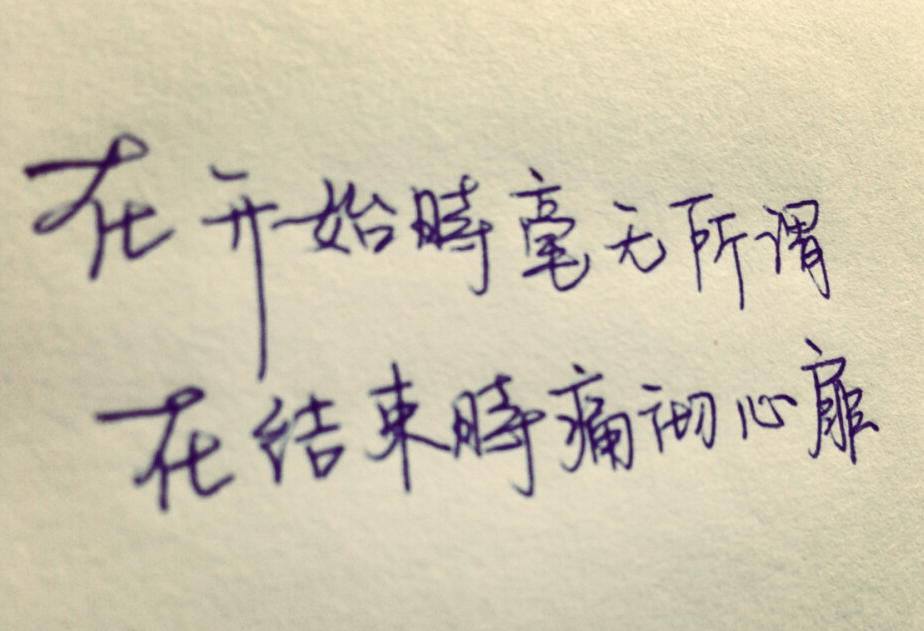 在开始時毫无所谓
在结束時痛彻心扉